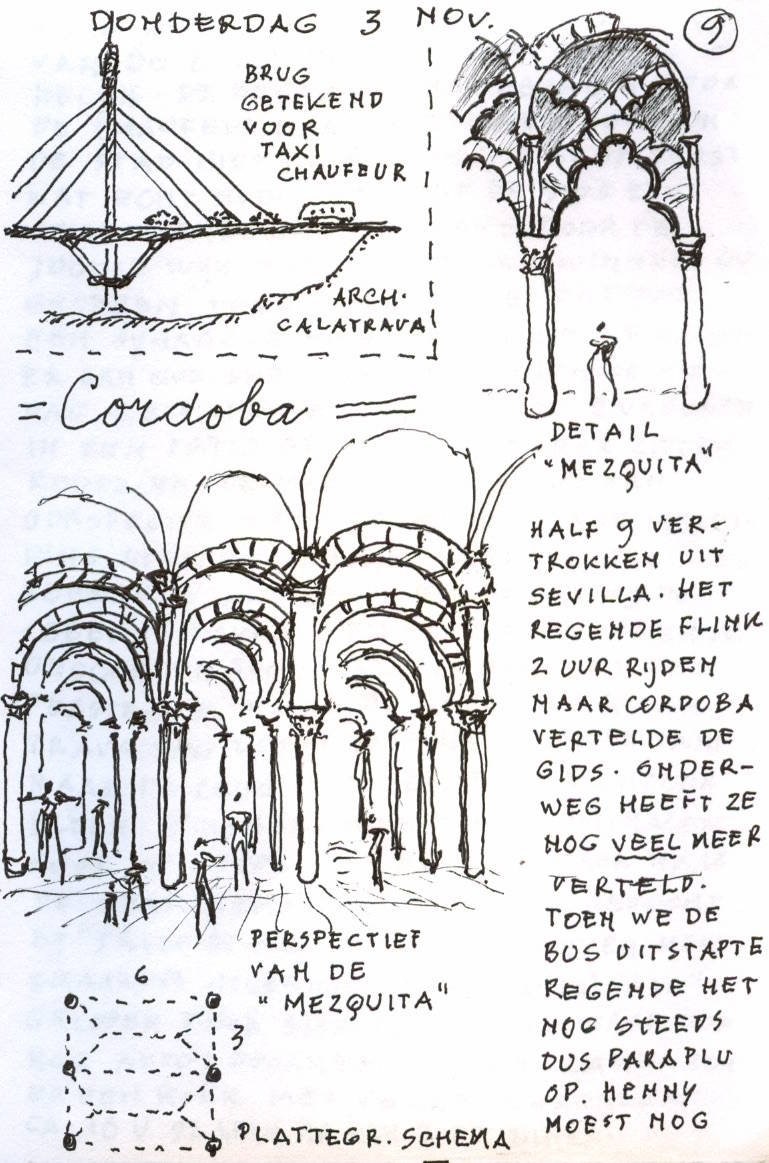 DONDERDAG 3 NOV.
9
BRUG
GETEKEND
VOOR
TAXI
CHAUFEUR
ARCH.
CALATRAVA
= Cordoba =
DETAIL
"MEZQUITA"
HALF 9 VER-
TROKKEN UIT
SEVILLA. HET
REGENDE FLINK
2 UUR RIJDEN
NAAR CORDOBA
VERTELDE DE
GIDS. ONDER-
WEG HEEFT ZE
NOG VEEL MEER
VERTELD.
TOEN WE DE
BUS UITSTAPTE
REGENDE HET
NOG STEEDS
DUS PARAPLU
OP. HENNY
MOEST NOG
PERSPECTIEF
VAN DE
"MEZQUITA"
6
3
PLATTEGR. SCHEMA